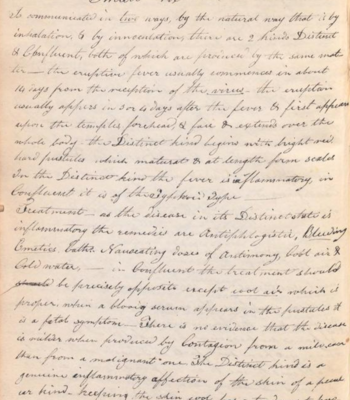 Small Pox
Is communicated in two ways, by the natural way that is by
inhalation, & by innoculation there are 2 kinds Distinct
& Confluent, both of which are produced by the same mat-
ter — the eruptive fever usually commences in about
14 days from the reception of the virus — the eruption
usually appears in 3 or 4 days after the fever & first appears
upon the temples forehead & face & extends over the
whole body — the Distinct kind begins with bright red
hard pustules which maturate & at length form scabs
In the Distinct kind the fever is inflammatory, in
Confluent it is of the Typhoid Type
Treatment — as the disease in its Distinct state is
inflammatory the remedies are Antiphlogistic, Bleeding
Emetics Caths. Nauseating doses of Antimony, Cool air &
Cold water, — in Confluent the treatment should
be precisely opposite except cool air which is
proper, when a bloody serum appears in the pustules it
is a fatal symptom — There is no evidence that the disease
is milder when produced by Contagion from a mild case
than from a malignant one The Distinct kind is a
genuine inflammatory affection of the skin of a pecul
iar kind. keeping the skin cool